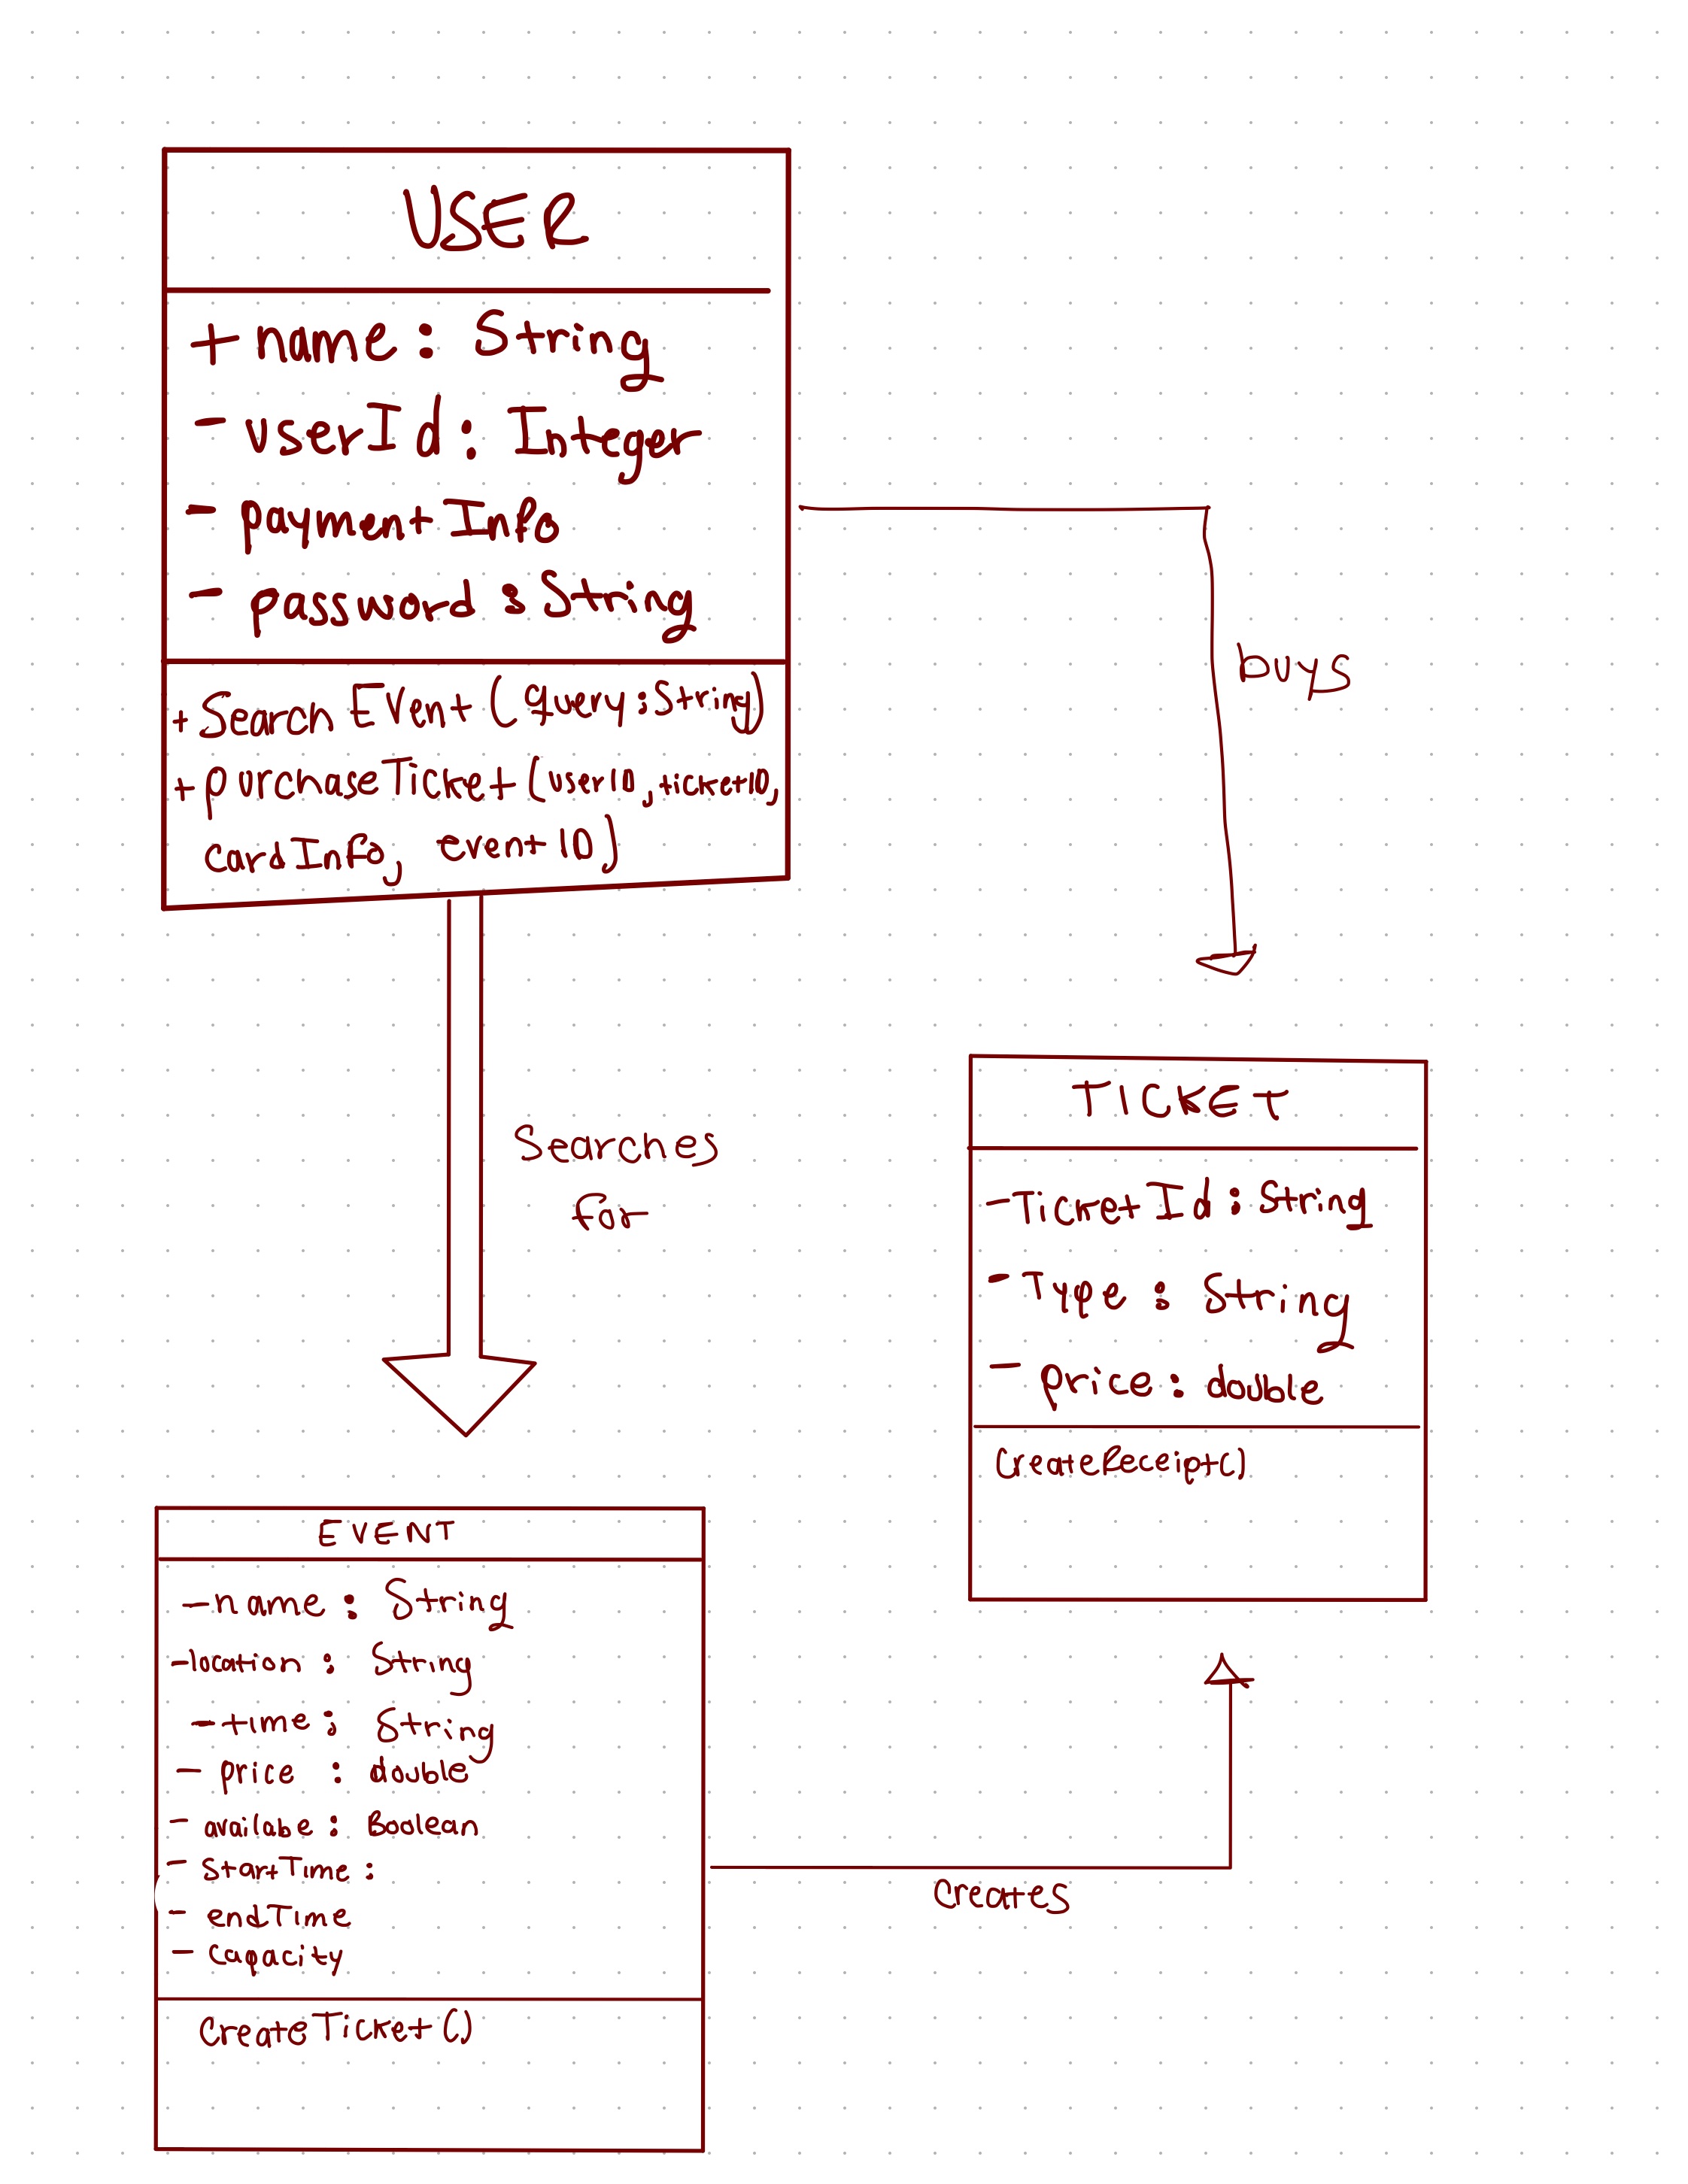 USER
+ name : String
- userId : Integer
- paymentInfo
- password : String
+ SearchEvent (query : String)
+ purchaseTicket (userID, ticketID,
cardInfo, eventID)
buys
Searches
for
TICKET
- TicketId : String
- Type : String
- price : double
CreateReceipt()
EVENT
- name : String
- location : String
- time : String
- price : double
- availabe : Boolean
- StartTime :
- endTime
- Capacity
CreateTicket()
Creates